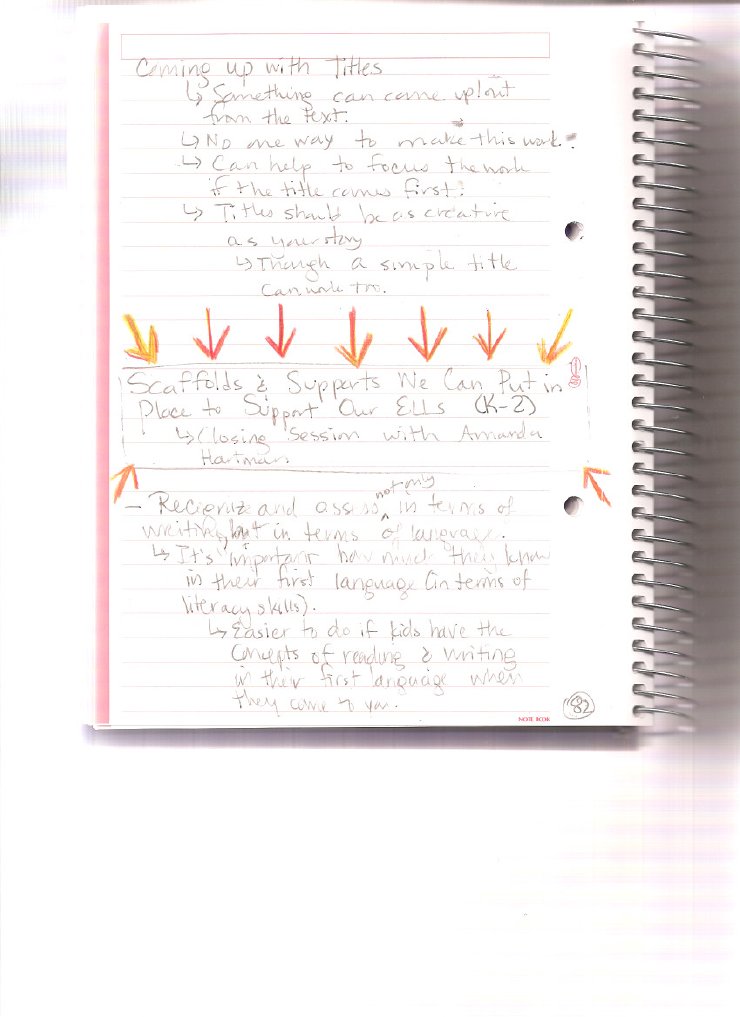 Coming up with Titles
↳ Something can come up/out
from the text.
↳ No one way to make this work.
↳ Can help to focus the work
if the title comes first.
↳ Titles should be as creative
as your story
↳ Though a simple title
can work too.
Scaffolds & Supports We Can Put in
Place to Support Our ELLs (K-2)
↳ Closing Session with Amanda
Hartman
not only
- Recignize and assess ^ in terms of
writing, but in terms of language.
↳ It's important how much they know
in their first language (in terms of
literacy skills).
↳ Easier to do if kids have the
concepts of reading & writing
in their first language when
they come to you.
NOTE BOOK
82